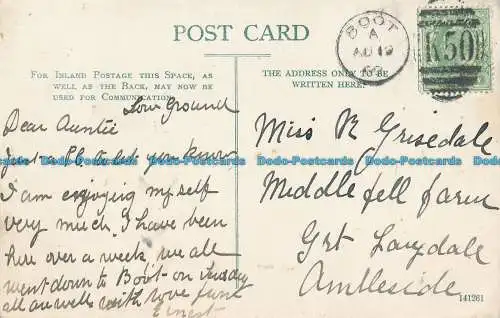 POST CARD
FOR INLAND POSTAGE THIS SPACE, AS
WELL AS THE BACK, MAY NOW BE
USED FOR COMMUNICATION.
THE ADDRESS ONLY TO BE
WRITTEN HERE.
BOOT
A
AU 19
K50
Low Ground
Dear Auntie
Just a P.C. to let you know
I am enjoying my self
very much. I have been
here over a week, we all
went down to Boot on
all are well with love from
Ernest
Miss R Grisedale
Middle fell farm
Grt Langdale
Ambleside
141261
Dodo-Postcards Dodo-Postcards Dodo-Postcards Dodo-Postcards Dodo-Postcards